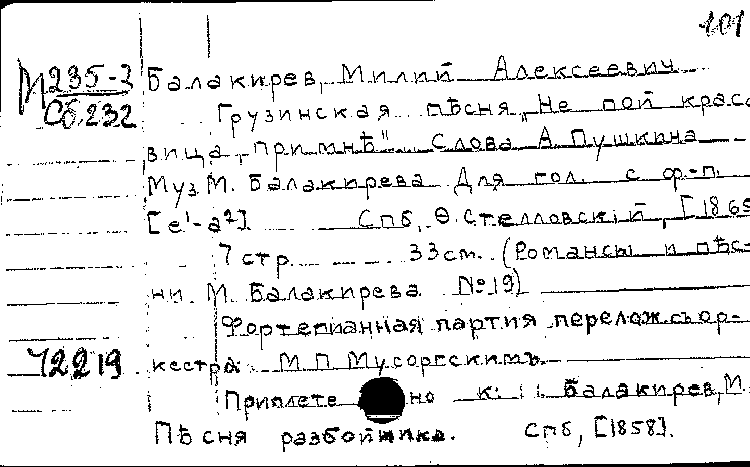 101
М 235-3 Балакирев, Милий Алексеевич
Сб.232 Грузинская пѣсня „Не пой краса
вица, при мнѣ" Слова А Пушкина
Муз М. Балакирева Для гол. с ф-п.
[e¹-a²]. Спб, Ѳ. Стелловскій, [1865
7 стр. 33см. (Романсы и пѣс-
ни. М. Балакирева №19)
Фортепианная партия перелож. съ ор-
72219 кестра М П Мусоргскимъ.
Приплетено к: Балакирев, М.
Пѣсня разбойника. Спб, [1858].